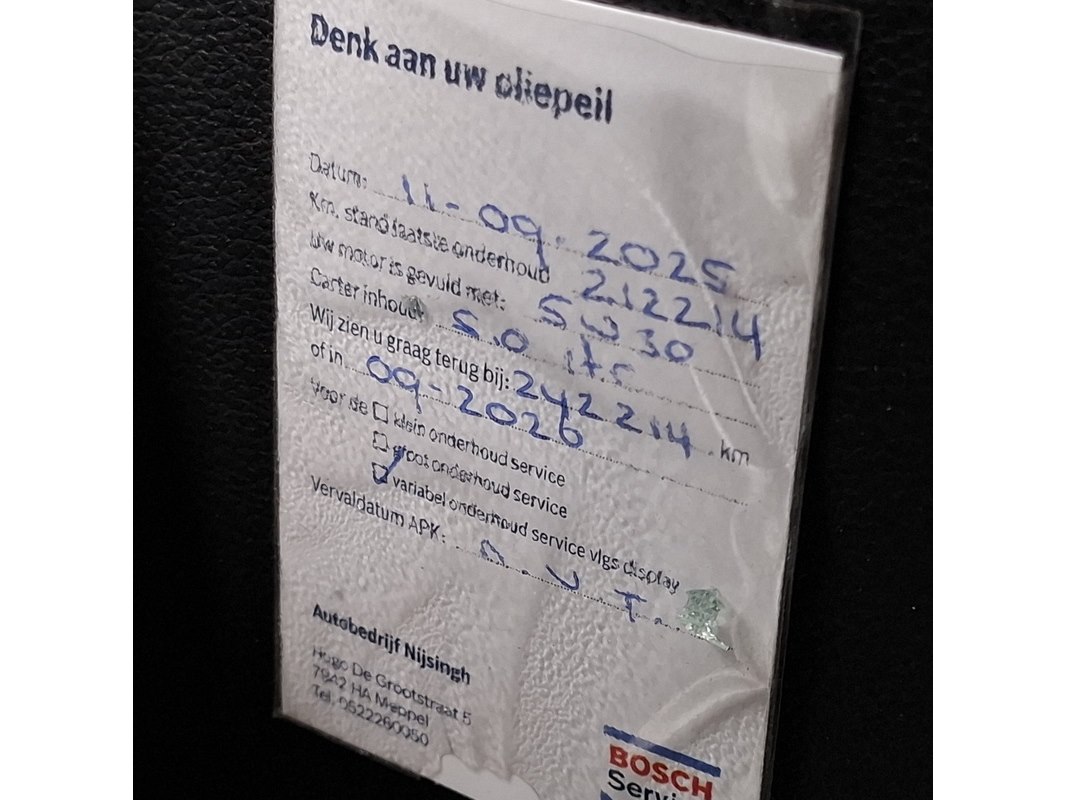 Denk aan uw oliepeil
Datum: 11-09-2025
Km. stand laatste onderhoud 212214
Uw motor is gevuld met: 5W30
Carter inhoud 5.0 ltr
Wij zien u graag terug bij: 242214 km
of in 09-2026
Voor de klein onderhoud service
groot onderhoud service
variabel onderhoud service vlgs display
Vervaldatum APK:
Autobedrijf Nijsingh
Hugo De Grootstraat 5
7942 HA Meppel
Tel. 0522260050
BOSCH